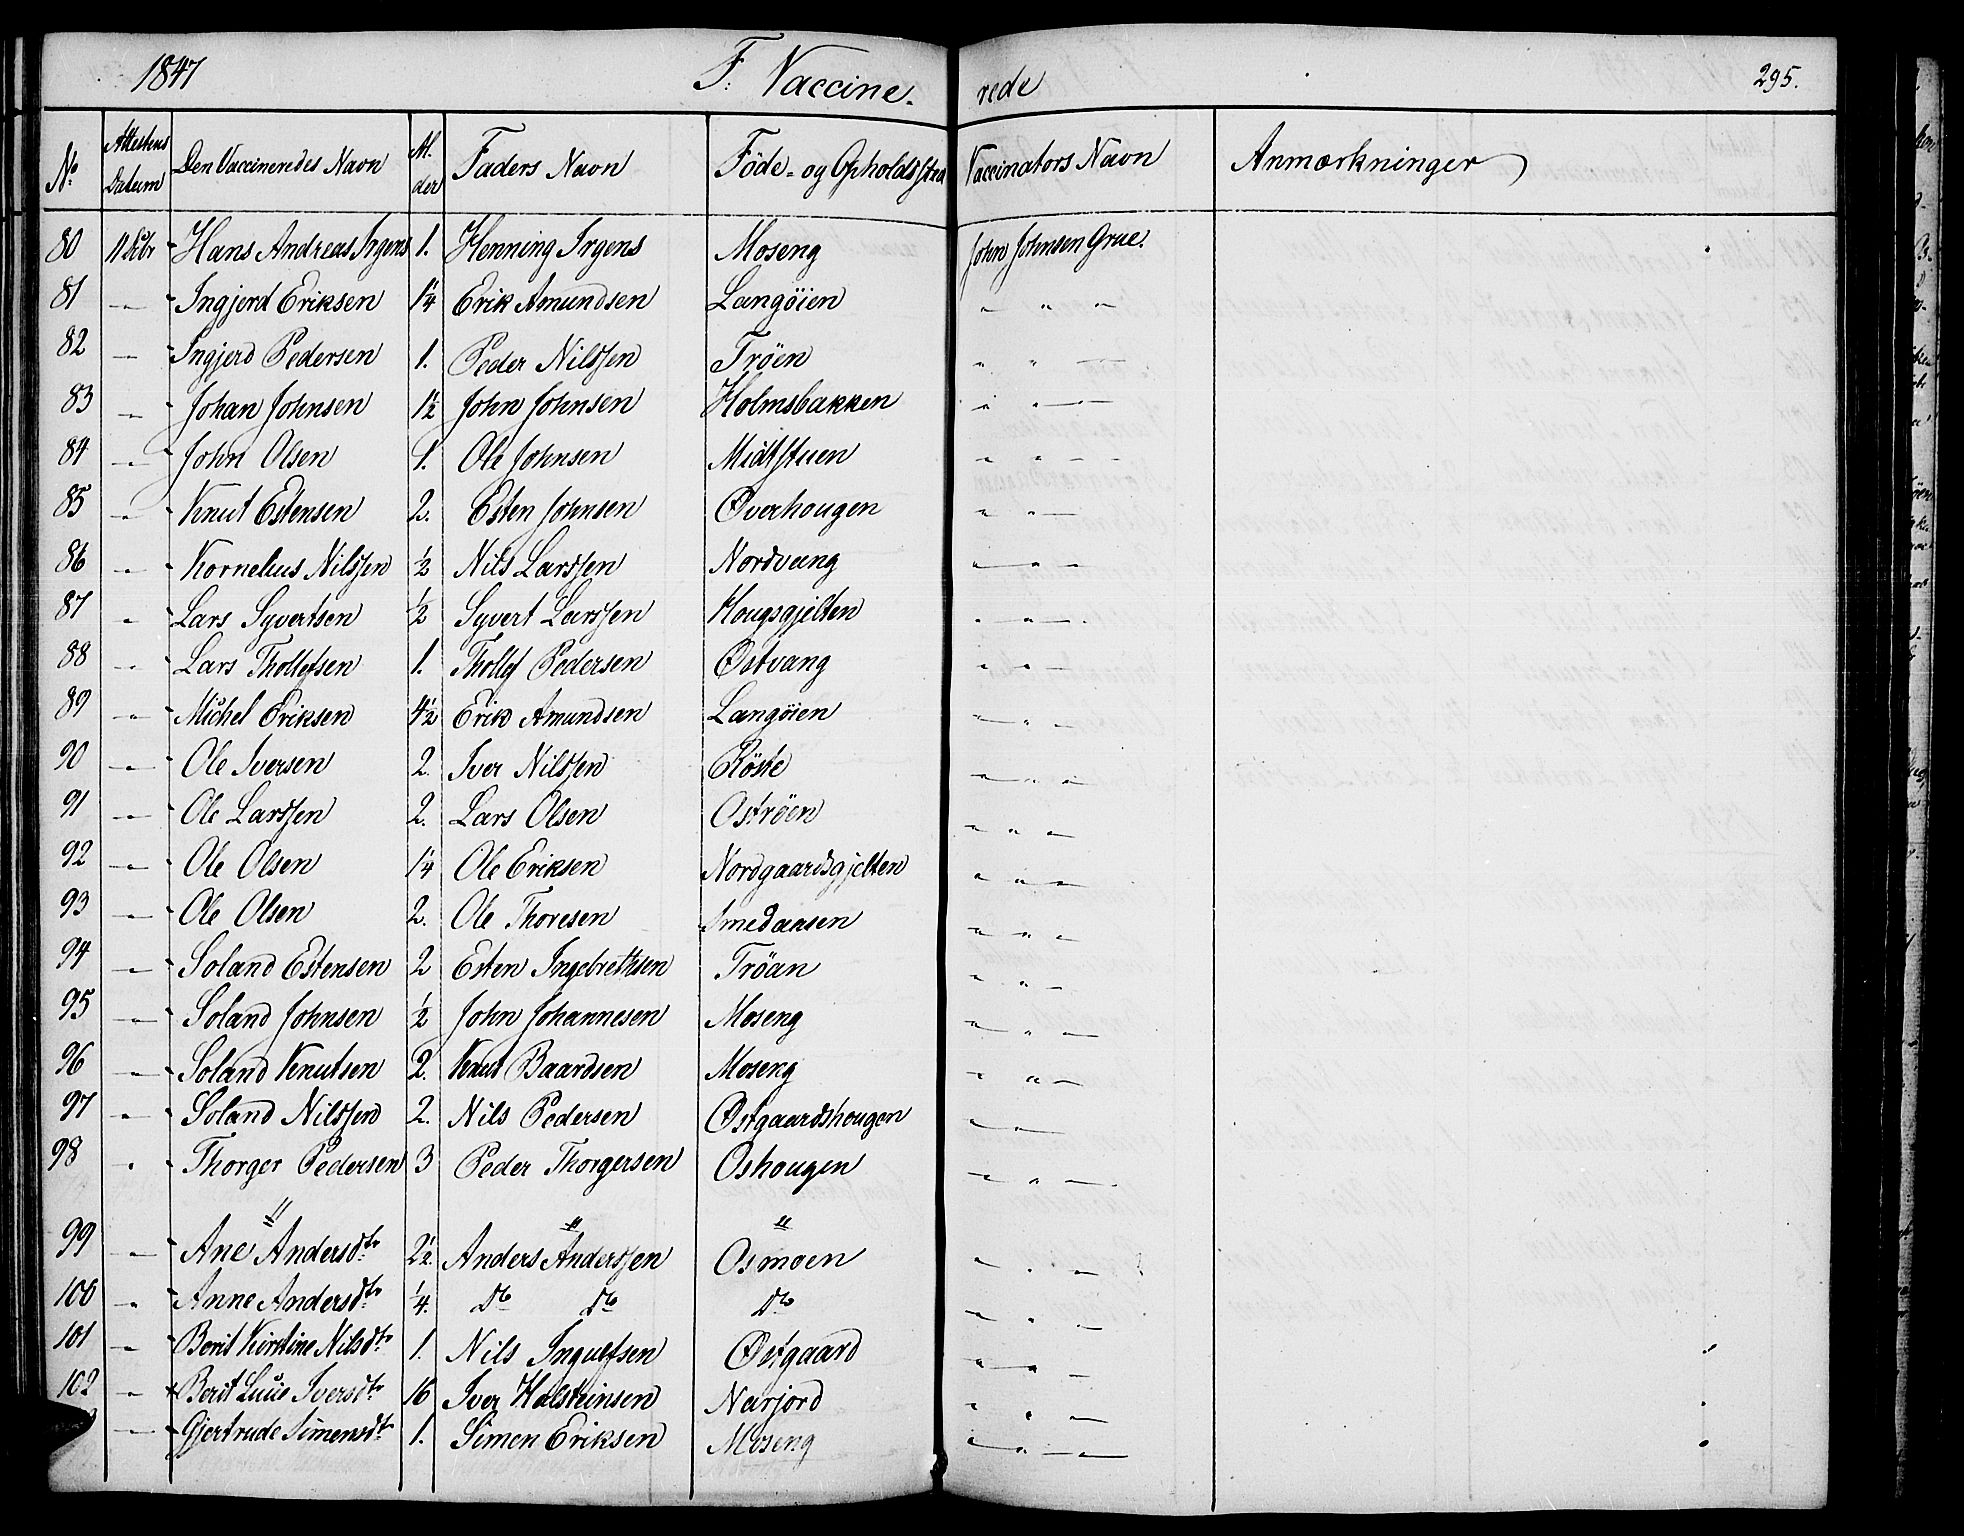 1847 F. Vaccine- rede 295.
No Attestens Datum Den Vaccineredes Navn Al-der Faders Navn Föde- og Opholdssted Vaccinators Navn Anmærkninger
80 11 Hans Andreas Irgens 1. Henning Irgens Moseng John Johnsen Grue.
81 -"- Ingjerd Eriksen 1¼ Erik Amundsen Langöien " " "
82 -"- Ingjerd Pedersen 1. Peder Nilssen Tröen " " "
83 -"- Johan Johnsen 1½ John Johnsen Holmsbakken " " "
84 -"- John Olsen 1. Ole Johnsen Midtstuen " " "
85 -"- Knut Estensen 2. Esten Johnsen Øverhougen " " "
86 -"- Kornelius Nilssen ½ Nils Larssen Nordvang " " "
87 " Lars Syvertsen ½ Syvert Larssen Hougsgjelten " " "
88 " Lars Thollefsen 1. Thollef Pedersen Østvang " " "
89 " Michel Eriksen 4½ Erik Amundsen Langöien " " "
90 -"- Ole Iversen 2. Iver Nilssen Röste " " "
91 -"- Ole Larssen 2. Lars Olsen Oströen " " "
92 -"- Ole Olsen 1¼ Ole Eriksen Nordgaardsgjelten " " "
93 -"- Ole Olsen 2. Ole Thoresen Smedaasen " " "
94 -"- Soland Estensen 2 Esten Ingebrethsen Tröan " " "
95 -"- Soland Johnsen ½ John Johannesen Moseng " " "
96 -"- Soland Knutsen 2. Knut Baardsen Moseng " " "
97 -"- Soland Nilssen 2. Nils Pedersen Østgaardshougen " "
98 " Thorger Pedersen 3 Peder Thorgersen Oshougen " " "
" " "
99 -"- Ane Andersdtr 2½. Anders Anderssen Osmoen " " "
100 -"- Anne Andersdtr ¼. Do Do Do " " "
101 -"- Berit Kirstine Nilsdtr 1. Nils Ingulfsen Østgaard " " "
102 -"- Berit Lucie Iversdtr 16 Iver Halsteinsen Narjord " " "
-"- Gjertrude Simensdtr 1. Simen Eriksen Moseng " " "